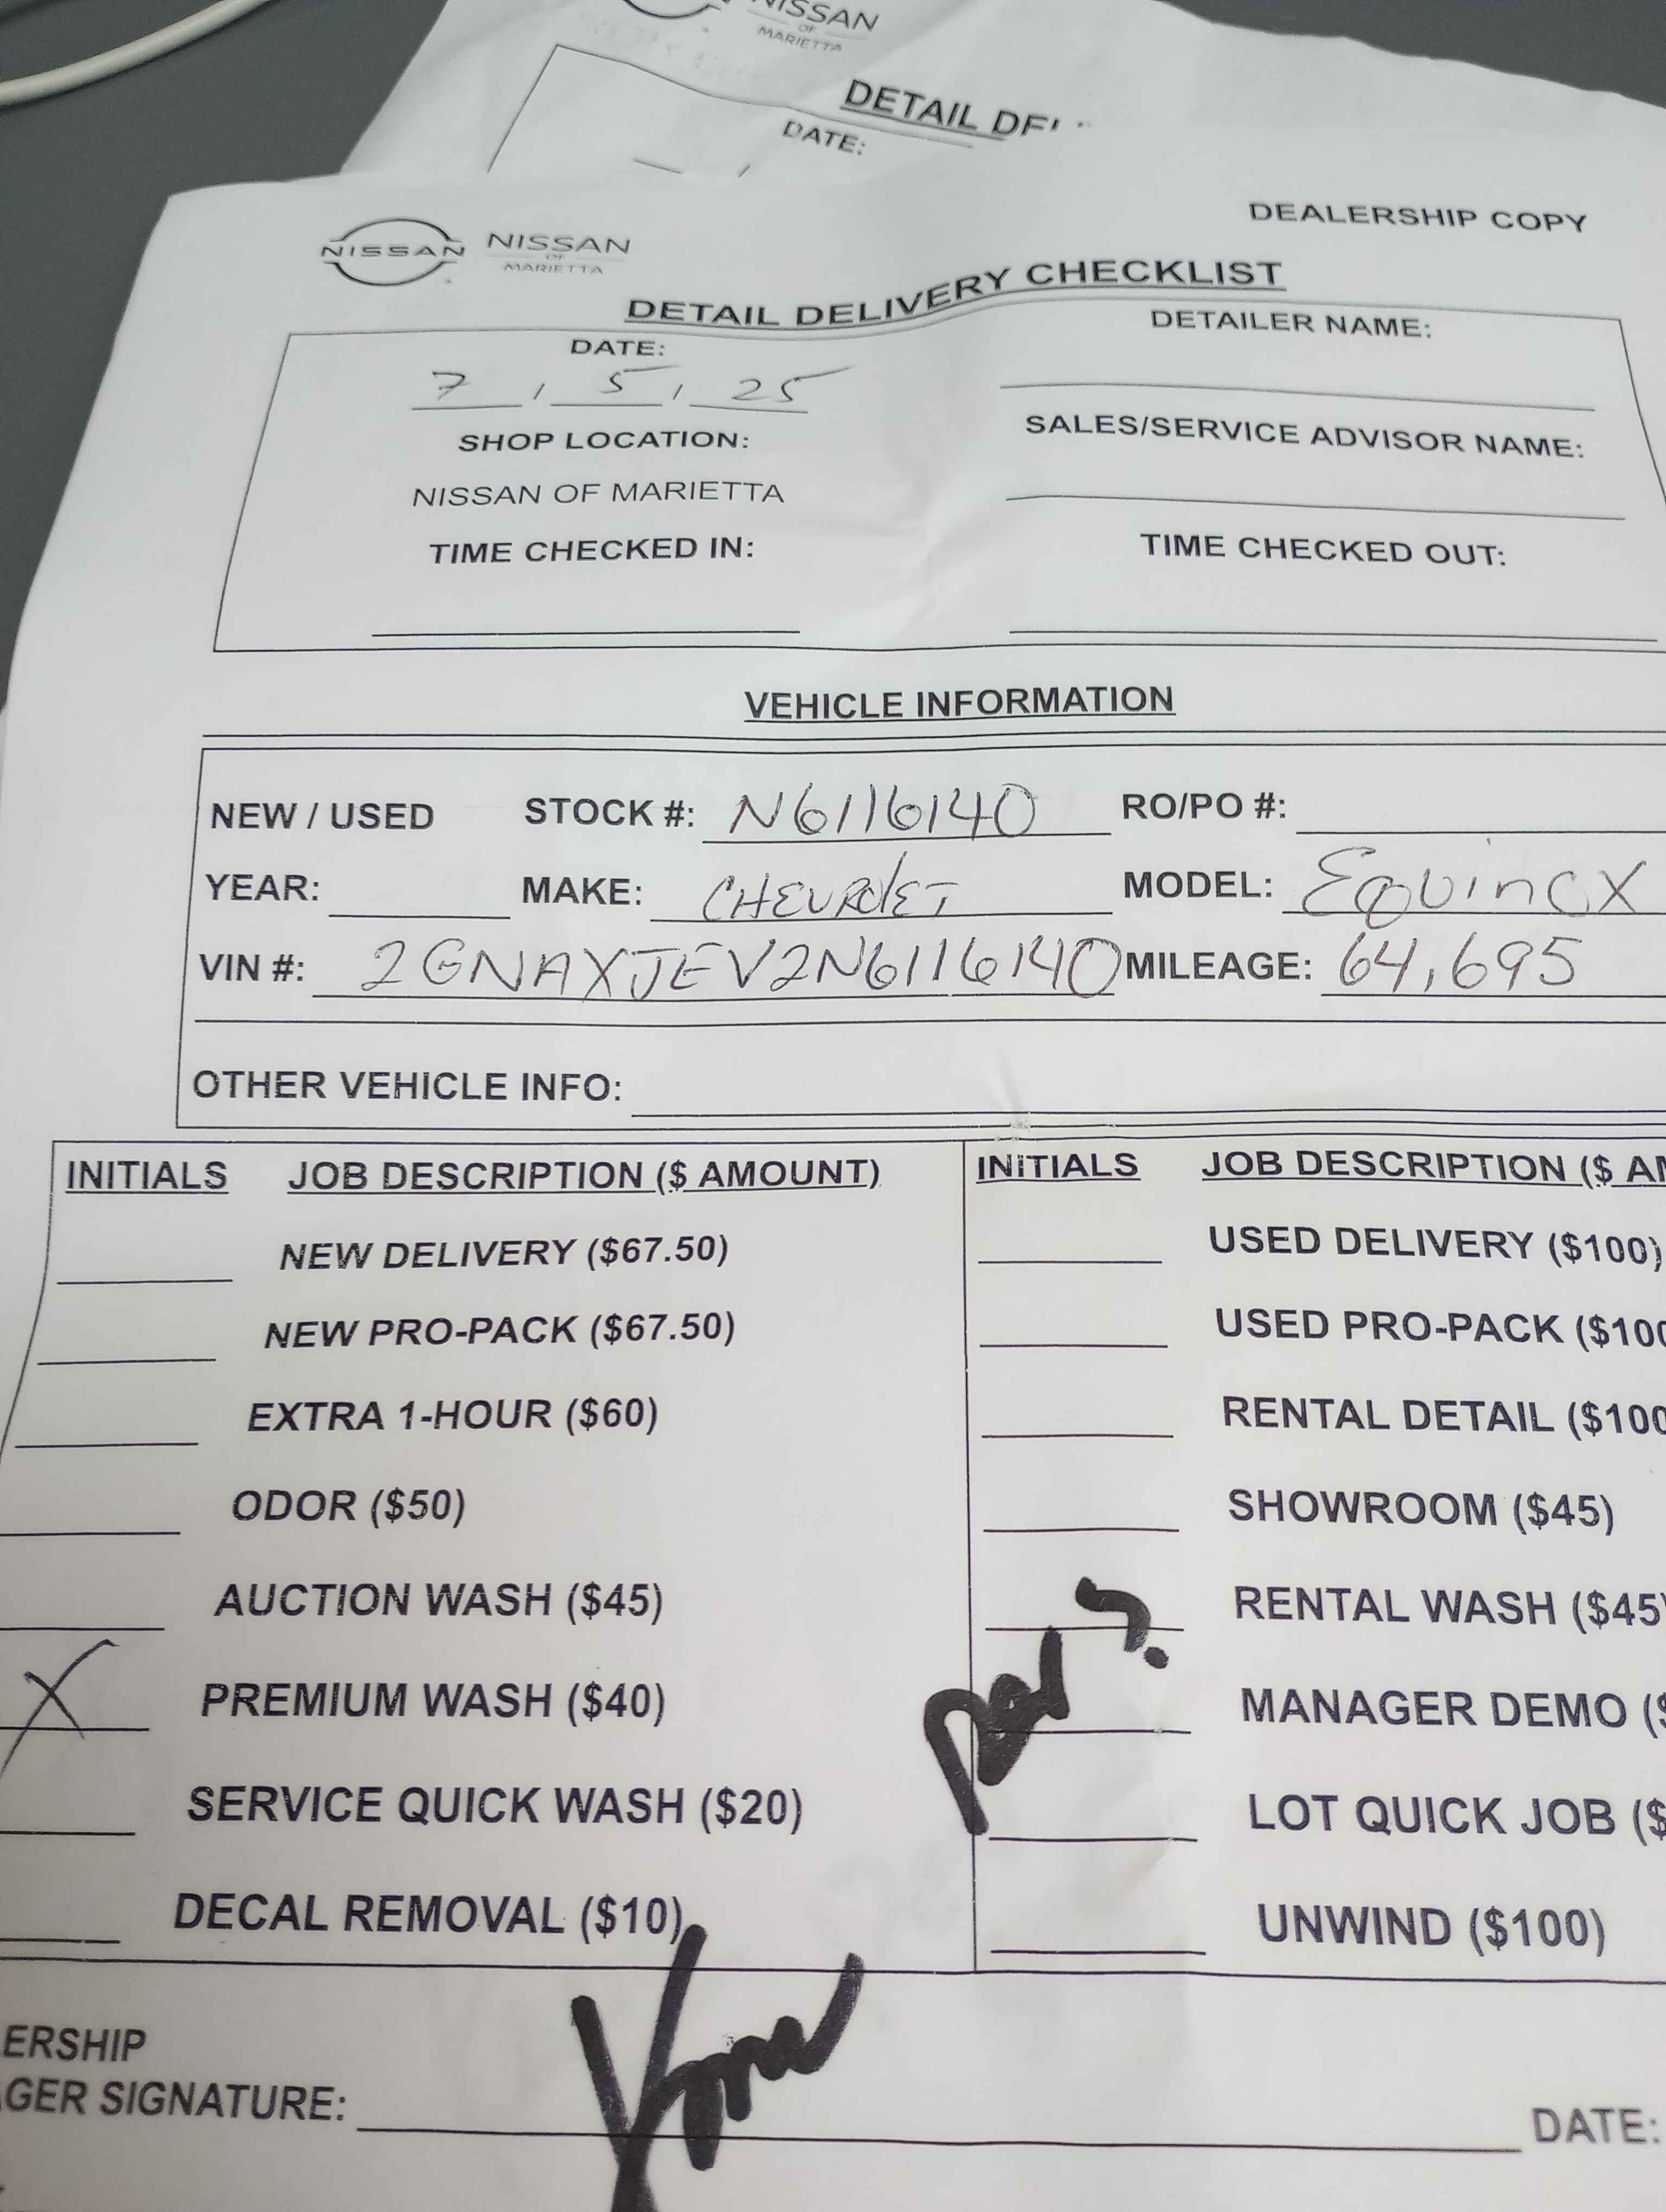 NISSAN
OF
MARIETTA
DETAIL DE
DATE:
DEALERSHIP COPY
NISSAN NISSAN
OF
MARIETTA
DETAIL DELIVERY CHECKLIST
DATE: DETAILER NAME:
7 / 5 / 25
SHOP LOCATION: SALES/SERVICE ADVISOR NAME:
NISSAN OF MARIETTA
TIME CHECKED IN: TIME CHECKED OUT:
VEHICLE INFORMATION
NEW / USED STOCK #: N6116140 RO/PO #:
YEAR: MAKE: CHEVROLET MODEL: EQUINOX
VIN #: 2GNAXJEV2N6116140 MILEAGE: 64,695
OTHER VEHICLE INFO:
INITIALS JOB DESCRIPTION ($ AMOUNT) INITIALS JOB DESCRIPTION ($ AM
NEW DELIVERY ($67.50) USED DELIVERY ($100)
NEW PRO-PACK ($67.50) USED PRO-PACK ($100
EXTRA 1-HOUR ($60) RENTAL DETAIL ($100
ODOR ($50) SHOWROOM ($45)
AUCTION WASH ($45) RENTAL WASH ($45)
X PREMIUM WASH ($40) MANAGER DEMO ($
SERVICE QUICK WASH ($20) LOT QUICK JOB ($
DECAL REMOVAL ($10) UNWIND ($100)
ERSHIP
GER SIGNATURE: DATE: